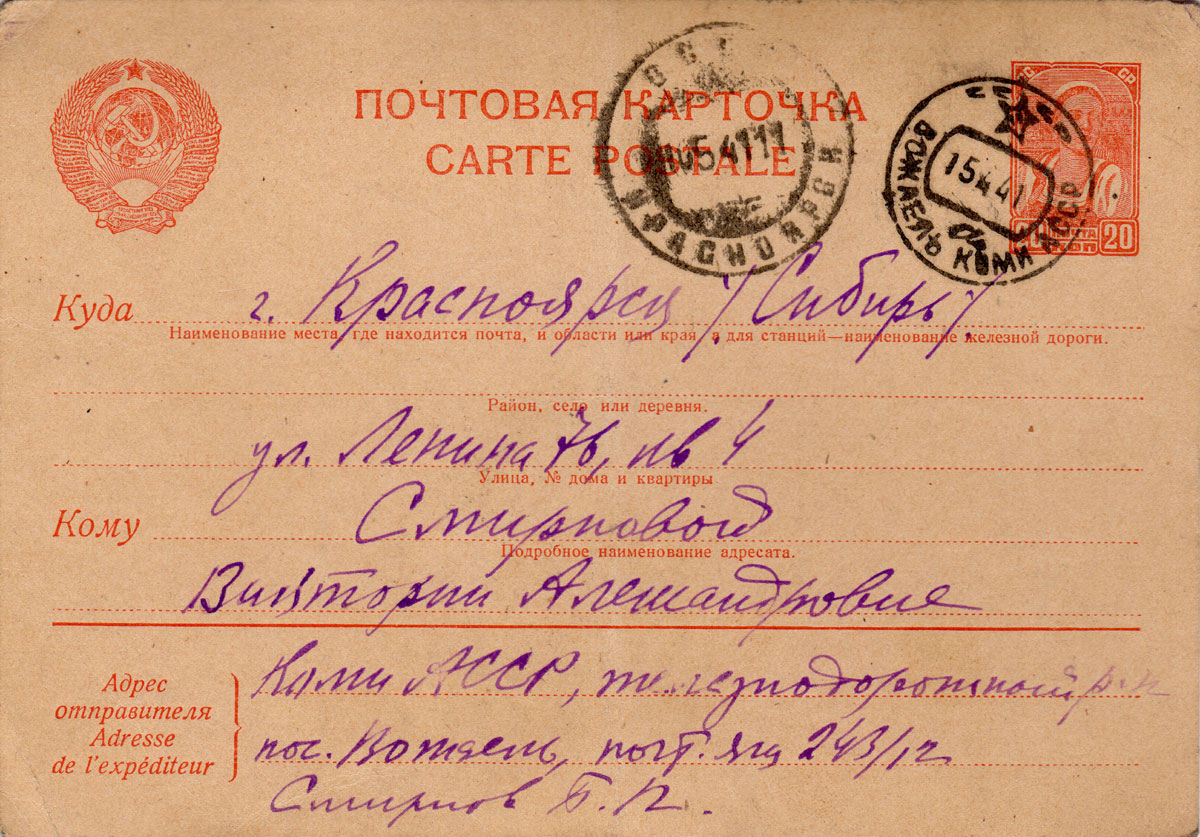 ПОЧТОВАЯ КАРТОЧКА
CARTE POSTALE
КРАСНОЯРСК
15 4 41
ВОЖАЕЛЬ КОМИ АССР
20
Куда г. Красноярск /Сибирь/
Наименование места, где находится почта, и области или края, а для станций—наименование железной дороги.
Район, село или деревня.
ул. Ленина 76, кв 4
Улица, № дома и квартиры
Кому Смирновой
Подробное наименование адресата.
Виктории Александровне
Адрес отправителя
Adresse de l'expéditeur
Коми АССР, железнодорожный р-н
пос. Вожаель, почт. ящ 243/12
Смирнов Б. П.